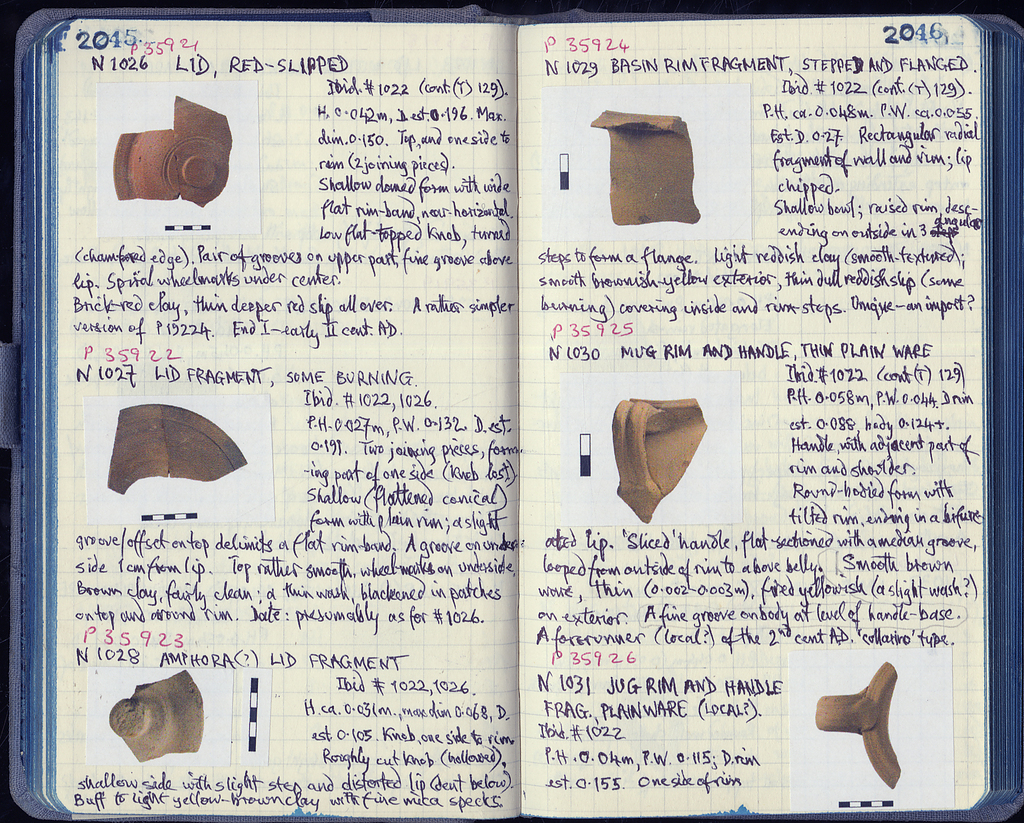 2045
P 35921
N 1026 LID, RED-SLIPPED
Ibid. # 1022 (cont.(T) 129).
H. 0.042m, D. est 0.196. Max.
dim. 0.150. Top, and one side to
rim (2 joining pieces).
Shallow domed form with wide
flat rim-band, near-horizontal.
Low flat-topped knob, turned
(chamfered edge). Pair of grooves on upper part, fine groove above
lip. Spiral wheelmarks under center.
Brick-red clay, thin deeper red slip all over. A rather simpler
version of P 19224. End I – early II cent. AD.
P 35922
N 1027 LID FRAGMENT, SOME BURNING.
Ibid. # 1022, 1026.
P.H. 0.027m, P.W. 0.132. D. est.
0.191. Two joining pieces, form-
ing part of one side (knob lost).
Shallow (flattened conical)
form with plain rim; a slight
groove/offset on top delimits a flat rim-band. A groove on under-
side 1 cm from lip. Top rather smooth, wheelmarks on underside.
Brown clay, fairly clean; a thin wash, blackened in patches
on top and around rim. Date: presumably as for # 1026.
P 35923
N 1028 AMPHORA(?) LID FRAGMENT
Ibid # 1022, 1026.
H. ca. 0.031m., max. dim 0.068, D.
est 0.105. Knob, one side to rim
Roughly cut knob (hollowed),
shallow side with slight step and distorted lip (dent below).
Buff to light yellow-brown clay with fine mica specks.
2046
P 35924
N 1029 BASIN RIM FRAGMENT, STEPPED AND FLANGED.
Ibid. # 1022 (cont. (T) 129).
P.H. ca. 0.048m. P.W. ca. 0.055
Est. D. 0.27. Rectangular radial
fragment of wall and rim; lip
chipped.
Shallow bowl; raised rim, desc-
ending on outside in 3 angular
steps to form a flange. Light reddish clay (smooth-textured);
smooth brownish-yellow exterior, thin dull reddish slip (some
burning) covering inside and rim-steps. Unique – an import?
P 35925
N 1030 MUG RIM AND HANDLE, THIN PLAIN WARE
Ibid. # 1022 (cont (T) 129)
P.H. 0.058m, P.W. 0.044. D rim
est. 0.088, body 0.124+.
Handle, with adjacent part of
rim and shoulder.
Round-bodied form with
tilted rim, ending in a bifurc-
ated lip. 'Sliced' handle, flat-sectioned with a median groove,
looped from outside of rim to above belly. Smooth brown
ware, thin (0.002-0.003m), fired yellowish (a slight wash?)
on exterior. A fine groove on body at level of handle-base.
A forerunner (local?) of the 2nd cent AD. 'collarino' type.
P 35926
N 1031 JUG RIM AND HANDLE
FRAG., PLAIN WARE (LOCAL?).
Ibid. # 1022
P.H. 0.04m, P.W. 0.115; D. rim
est. 0.155. One side of rim